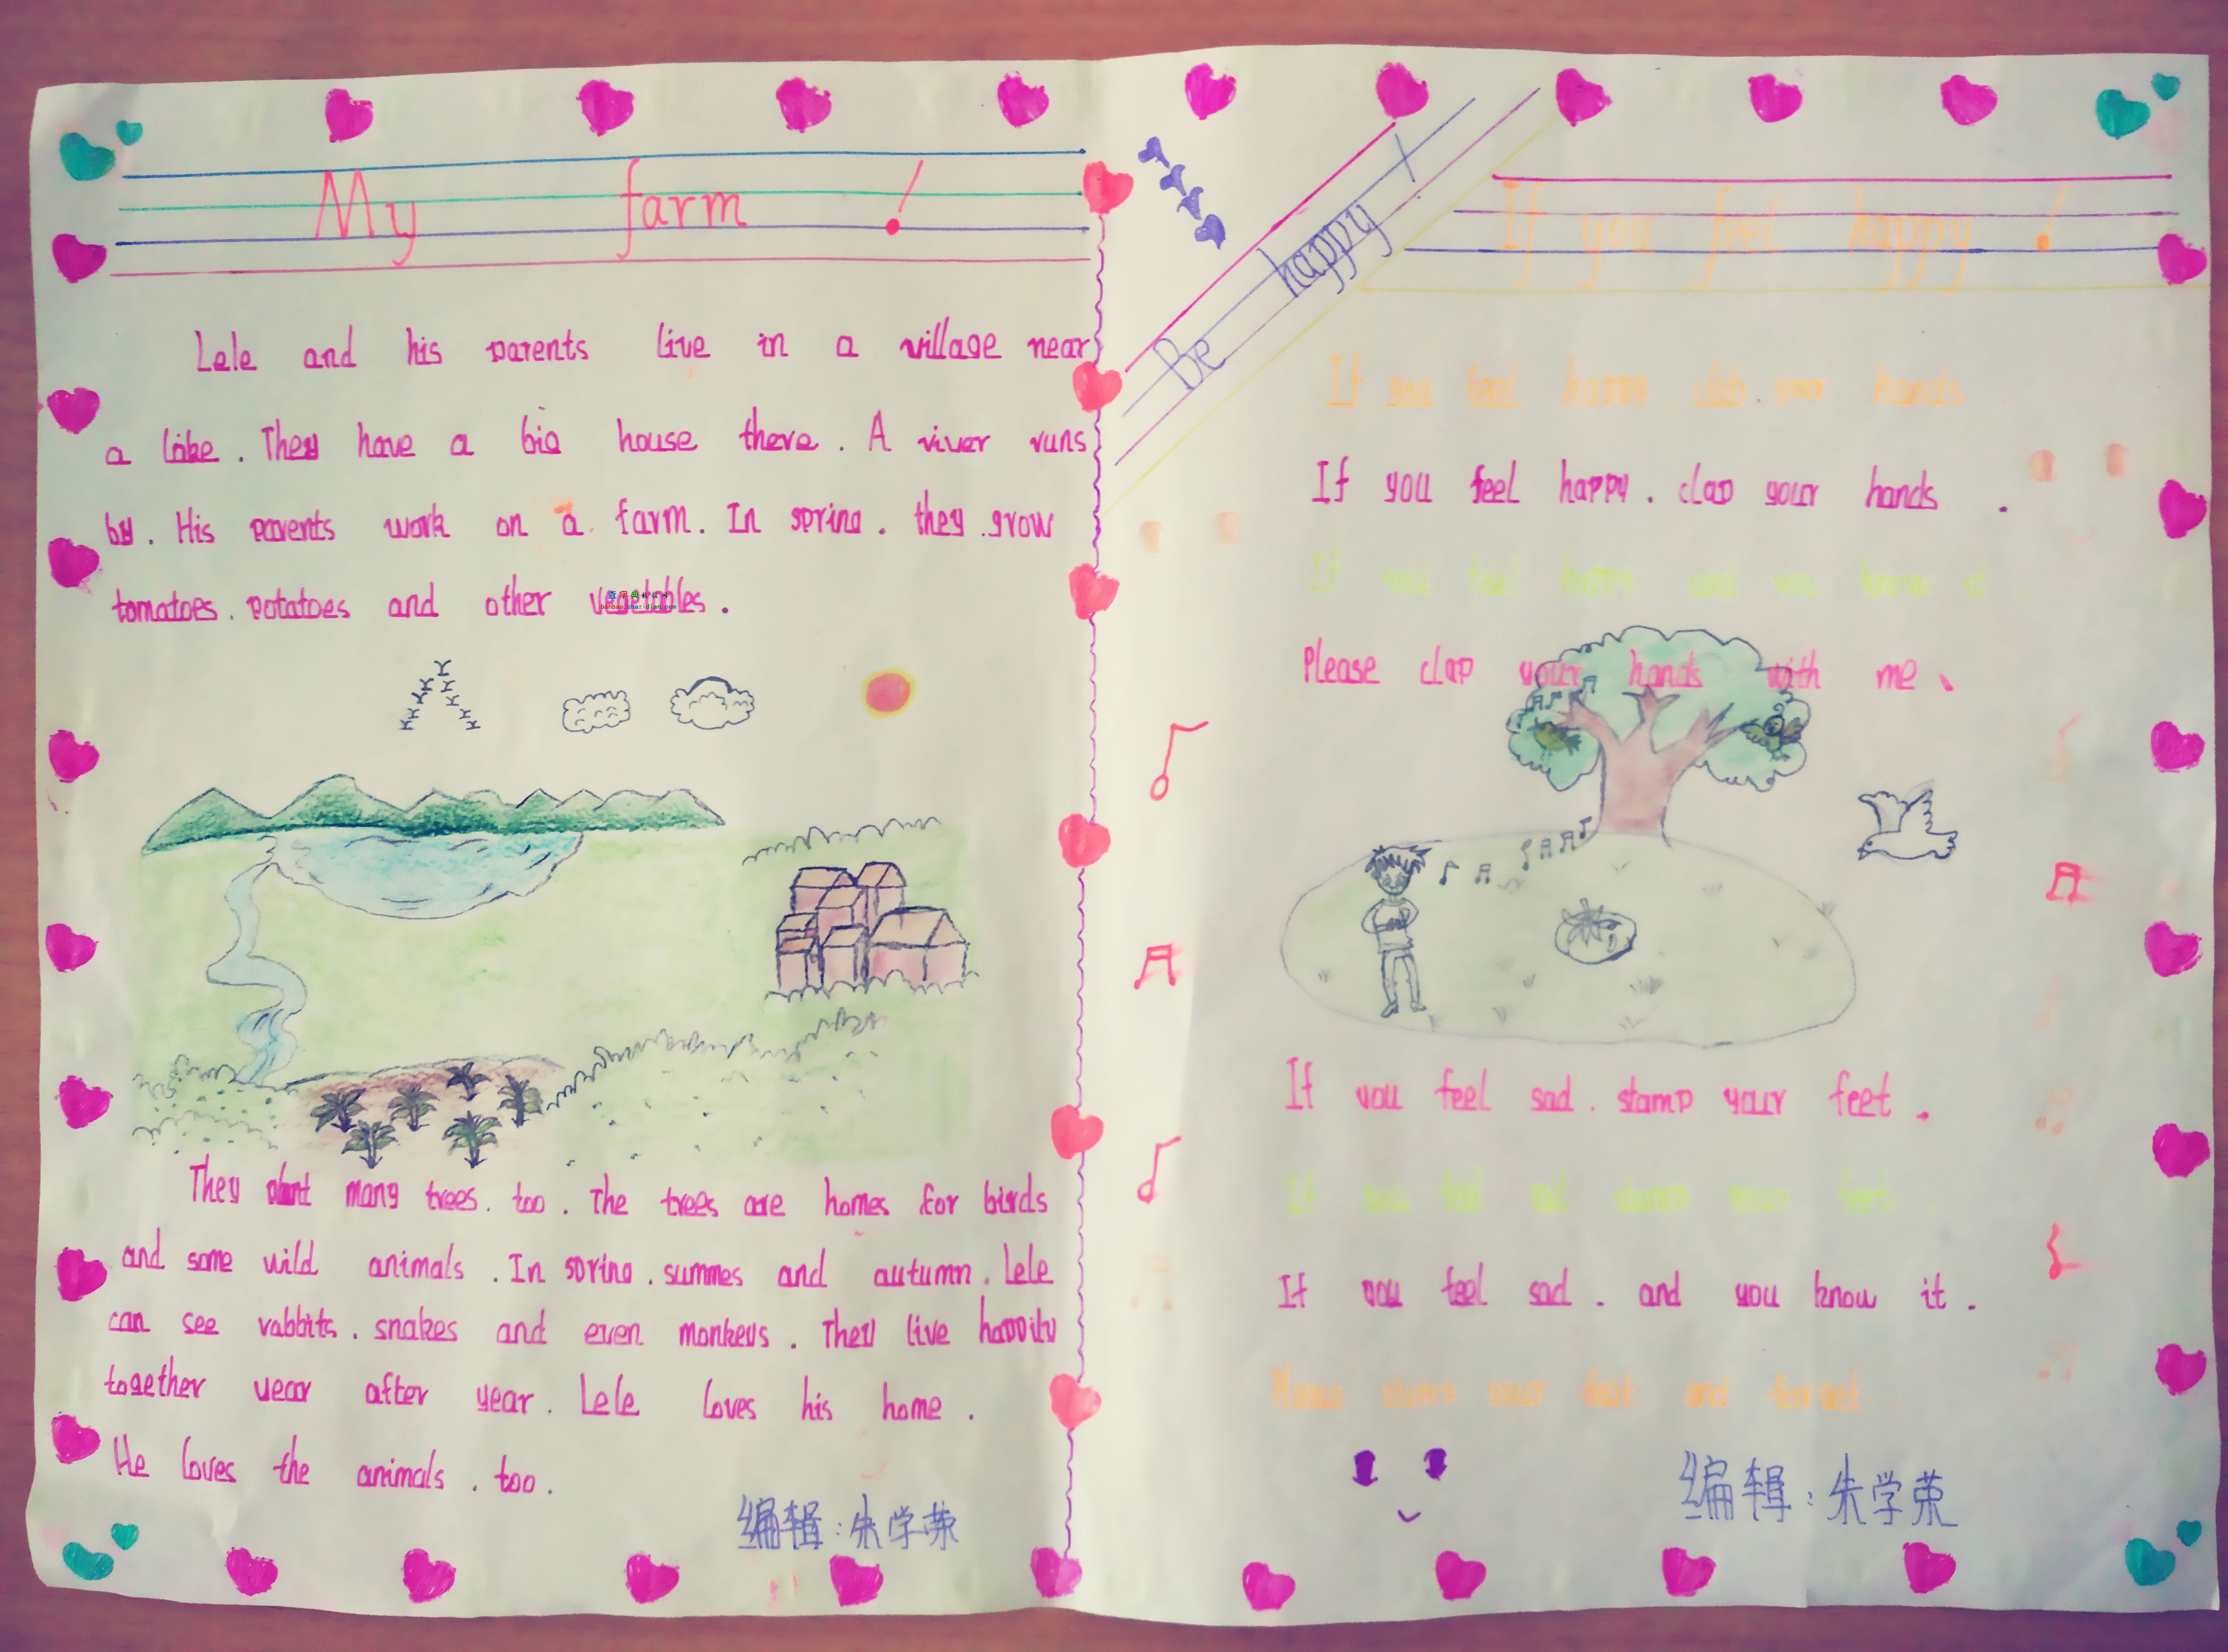 My farm !
Lele and his parents live in a village near
a lake . They have a big house there . A river runs
by . His parents work on a farm . In spring . they grow
tomatoes . potatoes and other vegetables .
They plant many trees . too . The trees are homes for birds
and some wild animals . In spring . summes and autumn . Lele
can see rabbits . snakes and even monkeys . They live happily
together year after year . Lele loves his home .
He loves the animals . too .
编辑:朱学荣
Be happy !
If you feel happy !
If you feel happy clap . your hands
If you feel happy . clap your hands .
If you feel happy and you know it .
Please clap your hands with me 、
If you feel sad . stamp your feet .
If you feel sad stamp your feet
If you feel sad . and you know it .
Please stamp your feet and
编辑:朱学荣